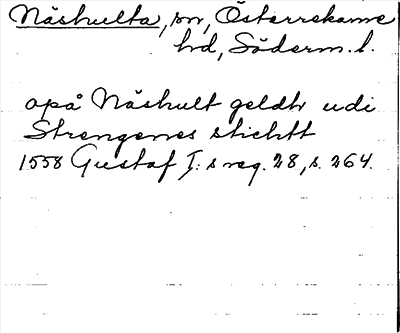 Näshulta, sn, Österrekarne
hd, Söderm. l.
opå Näshult geldtr udi
Strengenes stichtt
1558 Gustaf I:s reg. 28, s. 264.